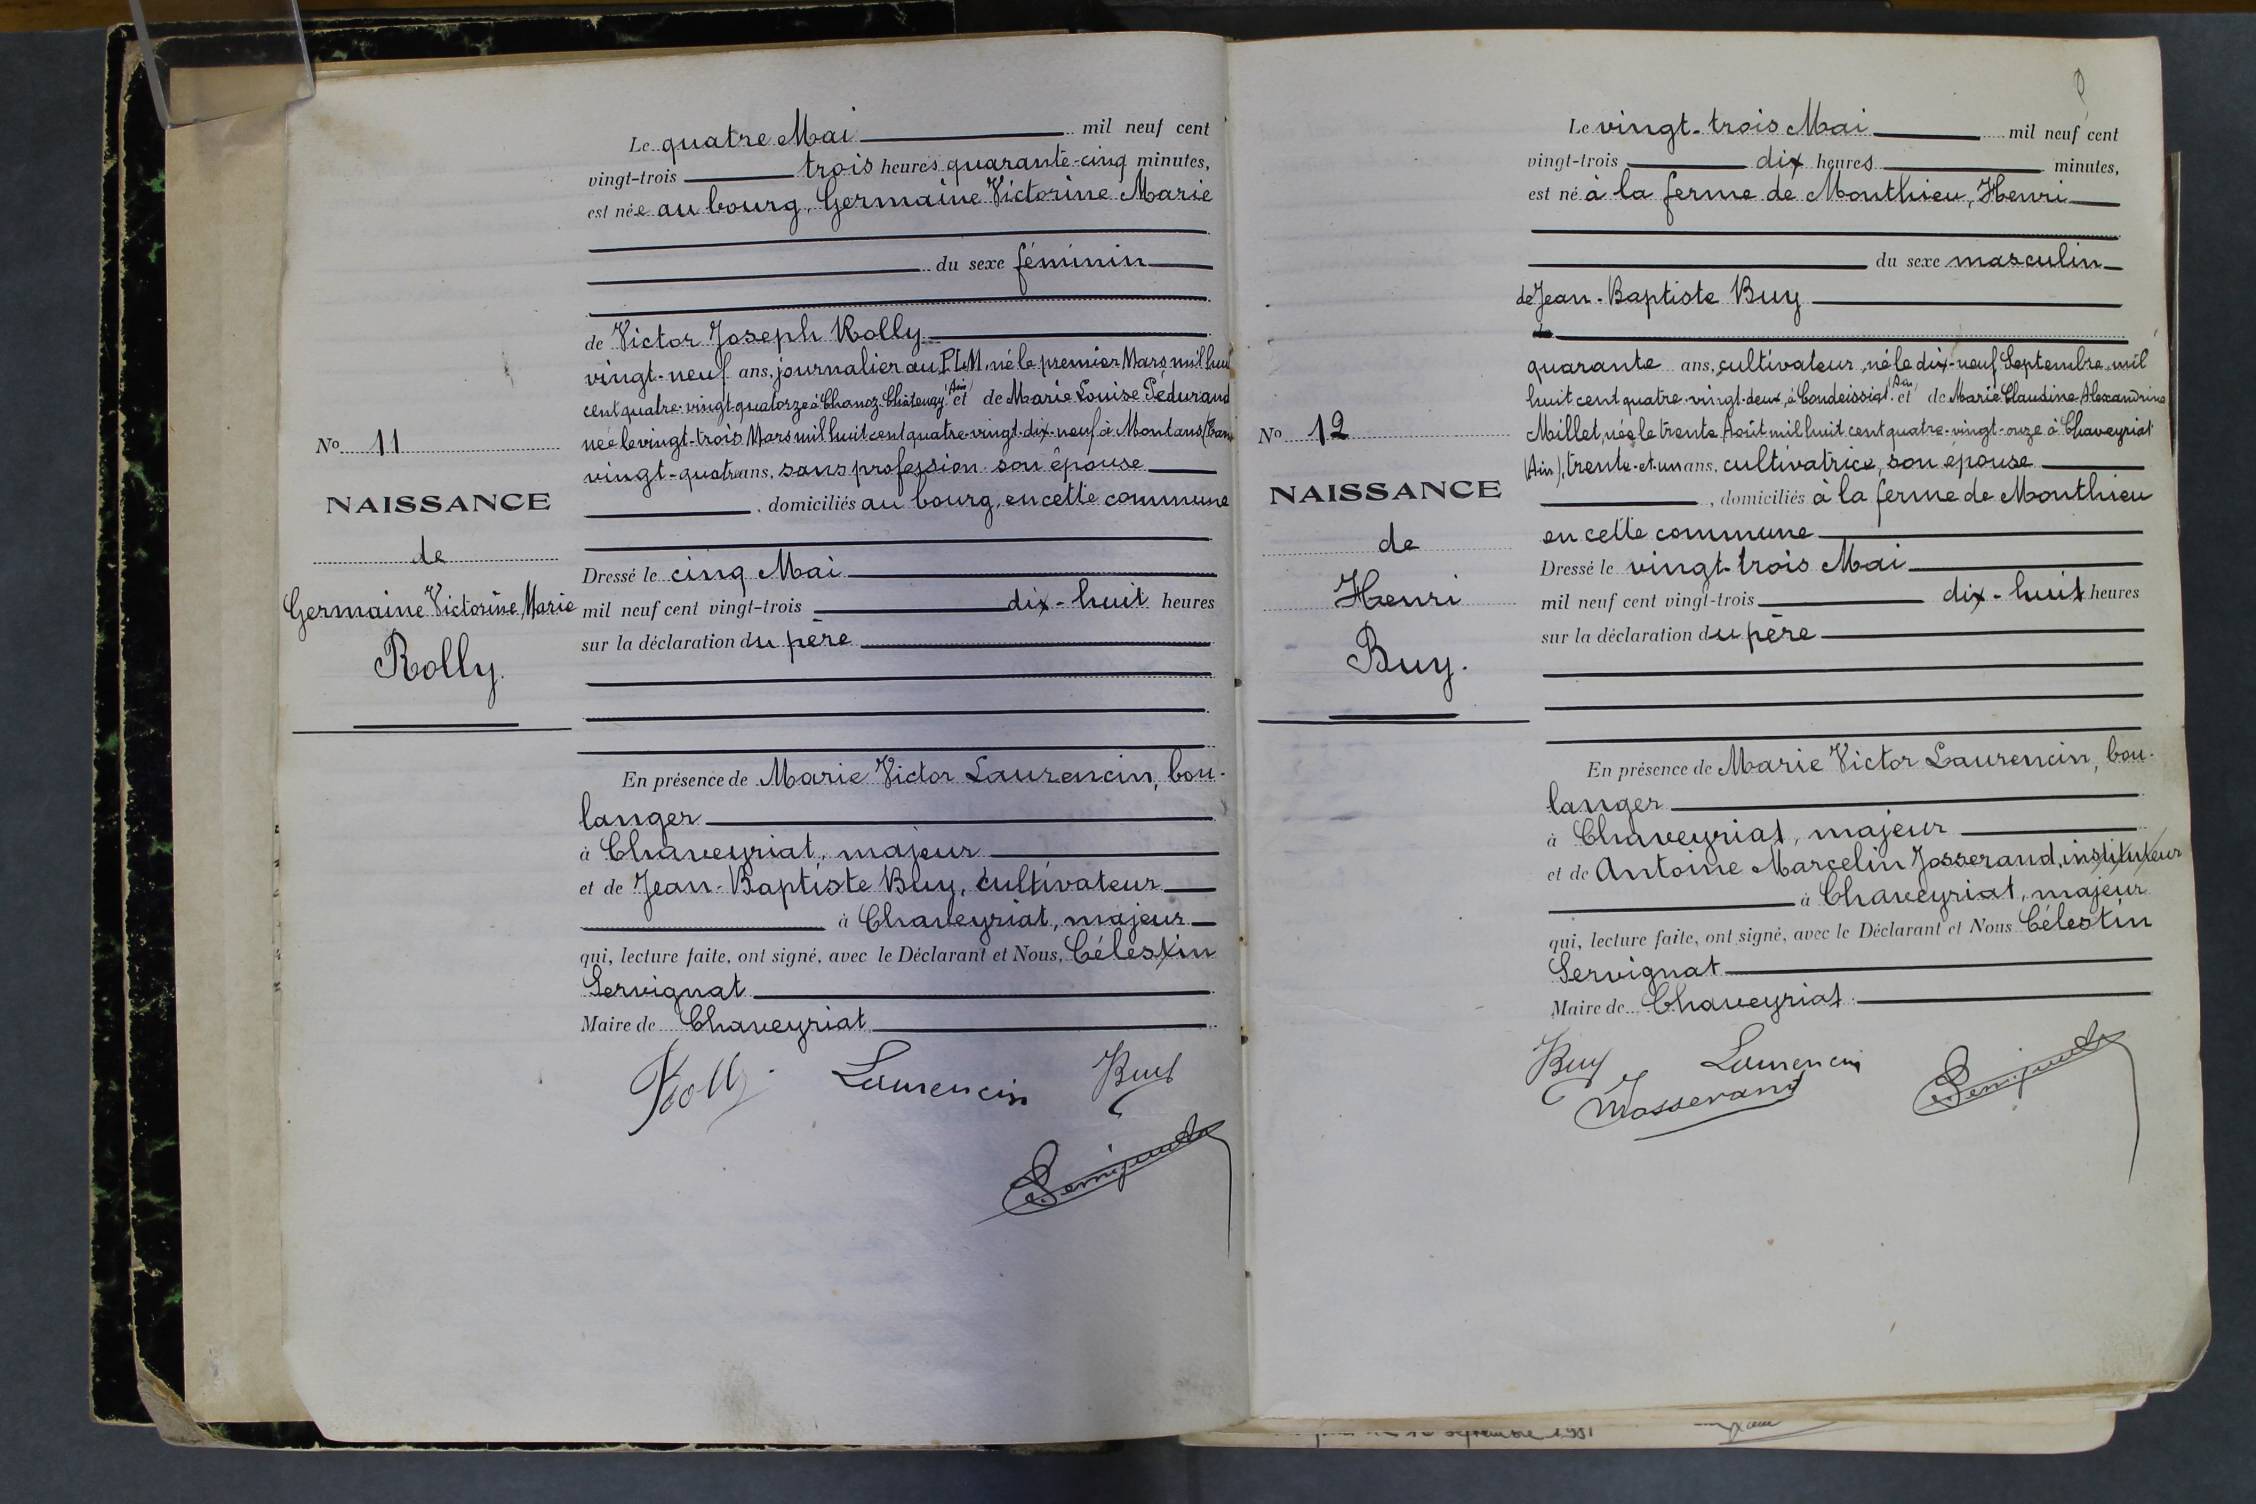 Le quatre Mai mil neuf cent
vingt-trois trois heures quarante-cinq minutes,
est née au bourg, Germaine Victorine Marie
du sexe féminin
de Victor Joseph Rolly
vingt-neuf ans, journalier au P.L.M, né le premier Mars mil huit
cent quatre-vingt-quatorze à Chanoz-Châtenay (Ain) et de Marie Louise Pédurand
née le vingt-trois Mars mil huit cent quatre-vingt-dix-neuf à Montans (Tarn
vingt-quatre ans, sans profession son épouse
, domiciliés au bourg, en cette commune
Dressé le cinq Mai
mil neuf cent vingt-trois dix-huit heures
sur la déclaration du père
En présence de Marie Victor Laurencin, bou-
langer
à Chaveyriat, majeur
et de Jean-Baptiste Buy, cultivateur
à Chaveyriat, majeur
qui, lecture faite, ont signé, avec le Déclarant et Nous, Célestin
Servignat
Maire de Chaveyriat
Rolly Laurencin Buy
Servignat
No 11
NAISSANCE
de
Germaine Victorine Marie
Rolly.
Le vingt-trois Mai mil neuf cent
vingt-trois dix heures minutes,
est né à la ferme de Monthieu, Henri
du sexe masculin
de Jean-Baptiste Buy
quarante ans, cultivateur, né le dix-neuf Septembre mil
huit cent quatre-vingt-deux, à Condeissiat (Ain) et de Marie Claudine Alexandrine
Millet, née le trente Août mil huit cent quatre-vingt-onze à Chaveyriat
(Ain), trente-et-un ans, cultivatrice, son épouse
, domiciliés à la ferme de Monthieu
en cette commune
Dressé le vingt-trois Mai
mil neuf cent vingt-trois dix-huit heures
sur la déclaration du père
En présence de Marie Victor Laurencin, bou-
langer
à Chaveyriat, majeur
et de Antoine Marcelin Josserand, instituteur
à Chaveyriat, majeur
qui, lecture faite, ont signé, avec le Déclarant et Nous Célestin
Servignat
Maire de Chaveyriat
Buy Laurencin
Josserand Servignat
No 12
NAISSANCE
de
Henri
Buy.
septembre 1981